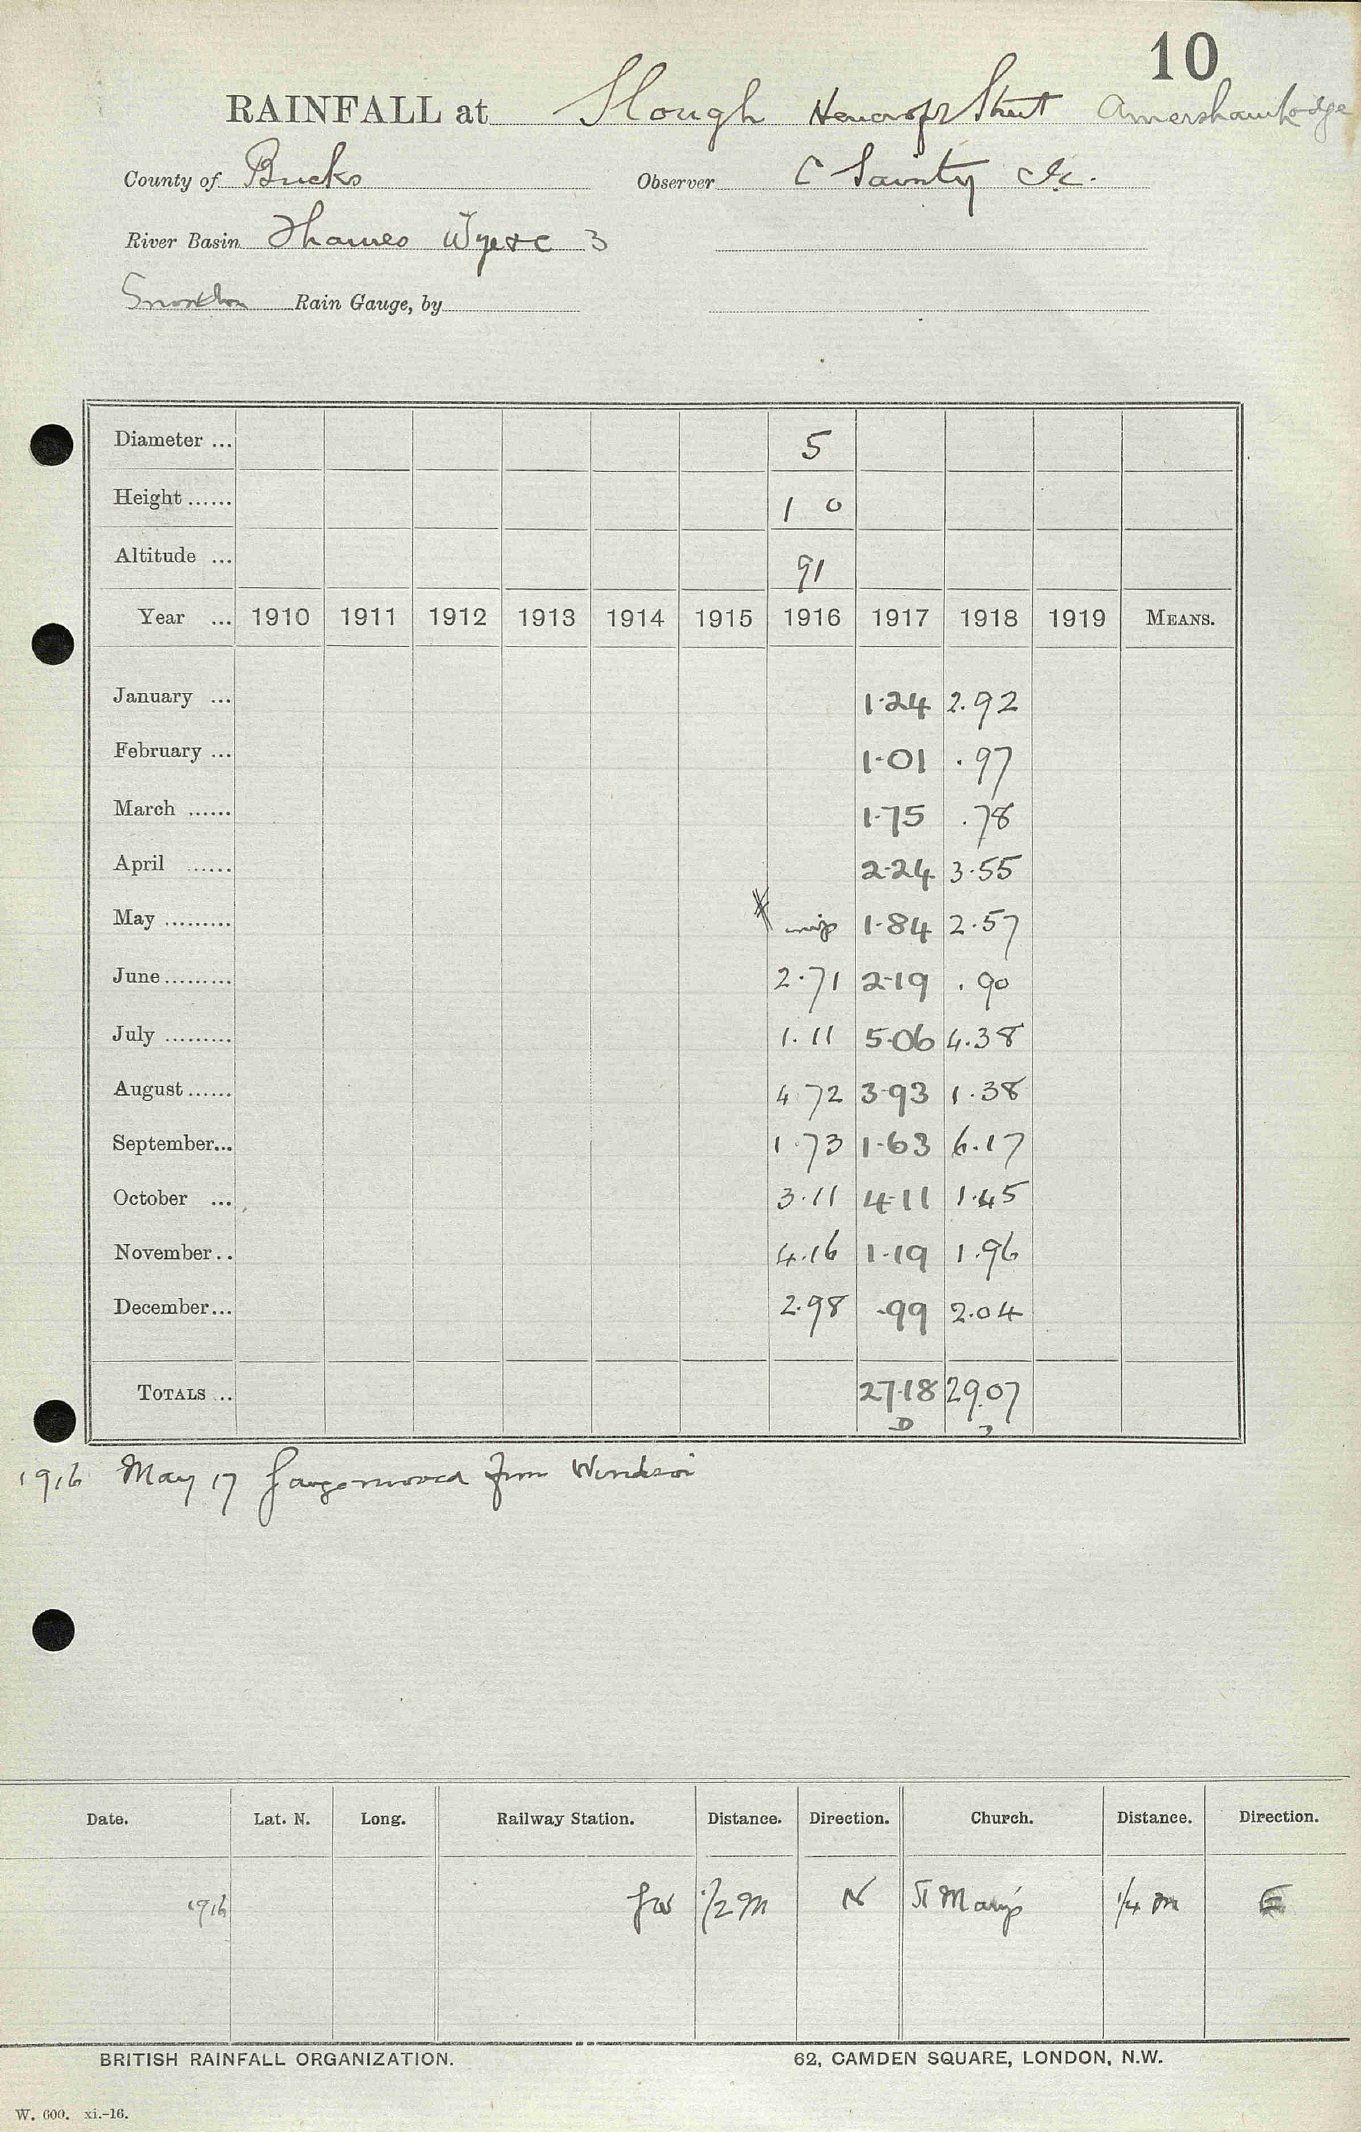 10
RAINFALL at Slough Hencroft Street Amersham Lodge
County of Bucks Observer C Sainty
River Basin Thames Wye &c 3
Snowdon Rain Gauge, by
Diameter ... 5
Height ...... 1 0
Altitude ... 91
Year ... 1910 1911 1912 1913 1914 1915 1916 1917 1918 1919 MEANS.
January ... 1.24 2.92
February ... 1.01 .97
March ...... 1.75 .78
April ...... 2.24 3.55
May ......... 1.84 2.57
June ......... 2.71 2.19 .90
July ......... 1.11 5.06 4.38
August ...... 4.72 3.93 1.38
September... 1.73 1.63 6.17
October ... 3.11 4.11 1.45
November .. 4.16 1.19 1.96
December... 2.98 .99 2.04
TOTALS ... 27.18 29.07
D
1916 May 17 Gauge moved from Windsor
Date. Lat. N. Long. Railway Station. Distance. Direction. Church. Distance. Direction.
1916 GW 1/2 M N St Mary's 1/4 m E
BRITISH RAINFALL ORGANIZATION. 62, CAMDEN SQUARE, LONDON, N.W.
W. 600. xi.-16.